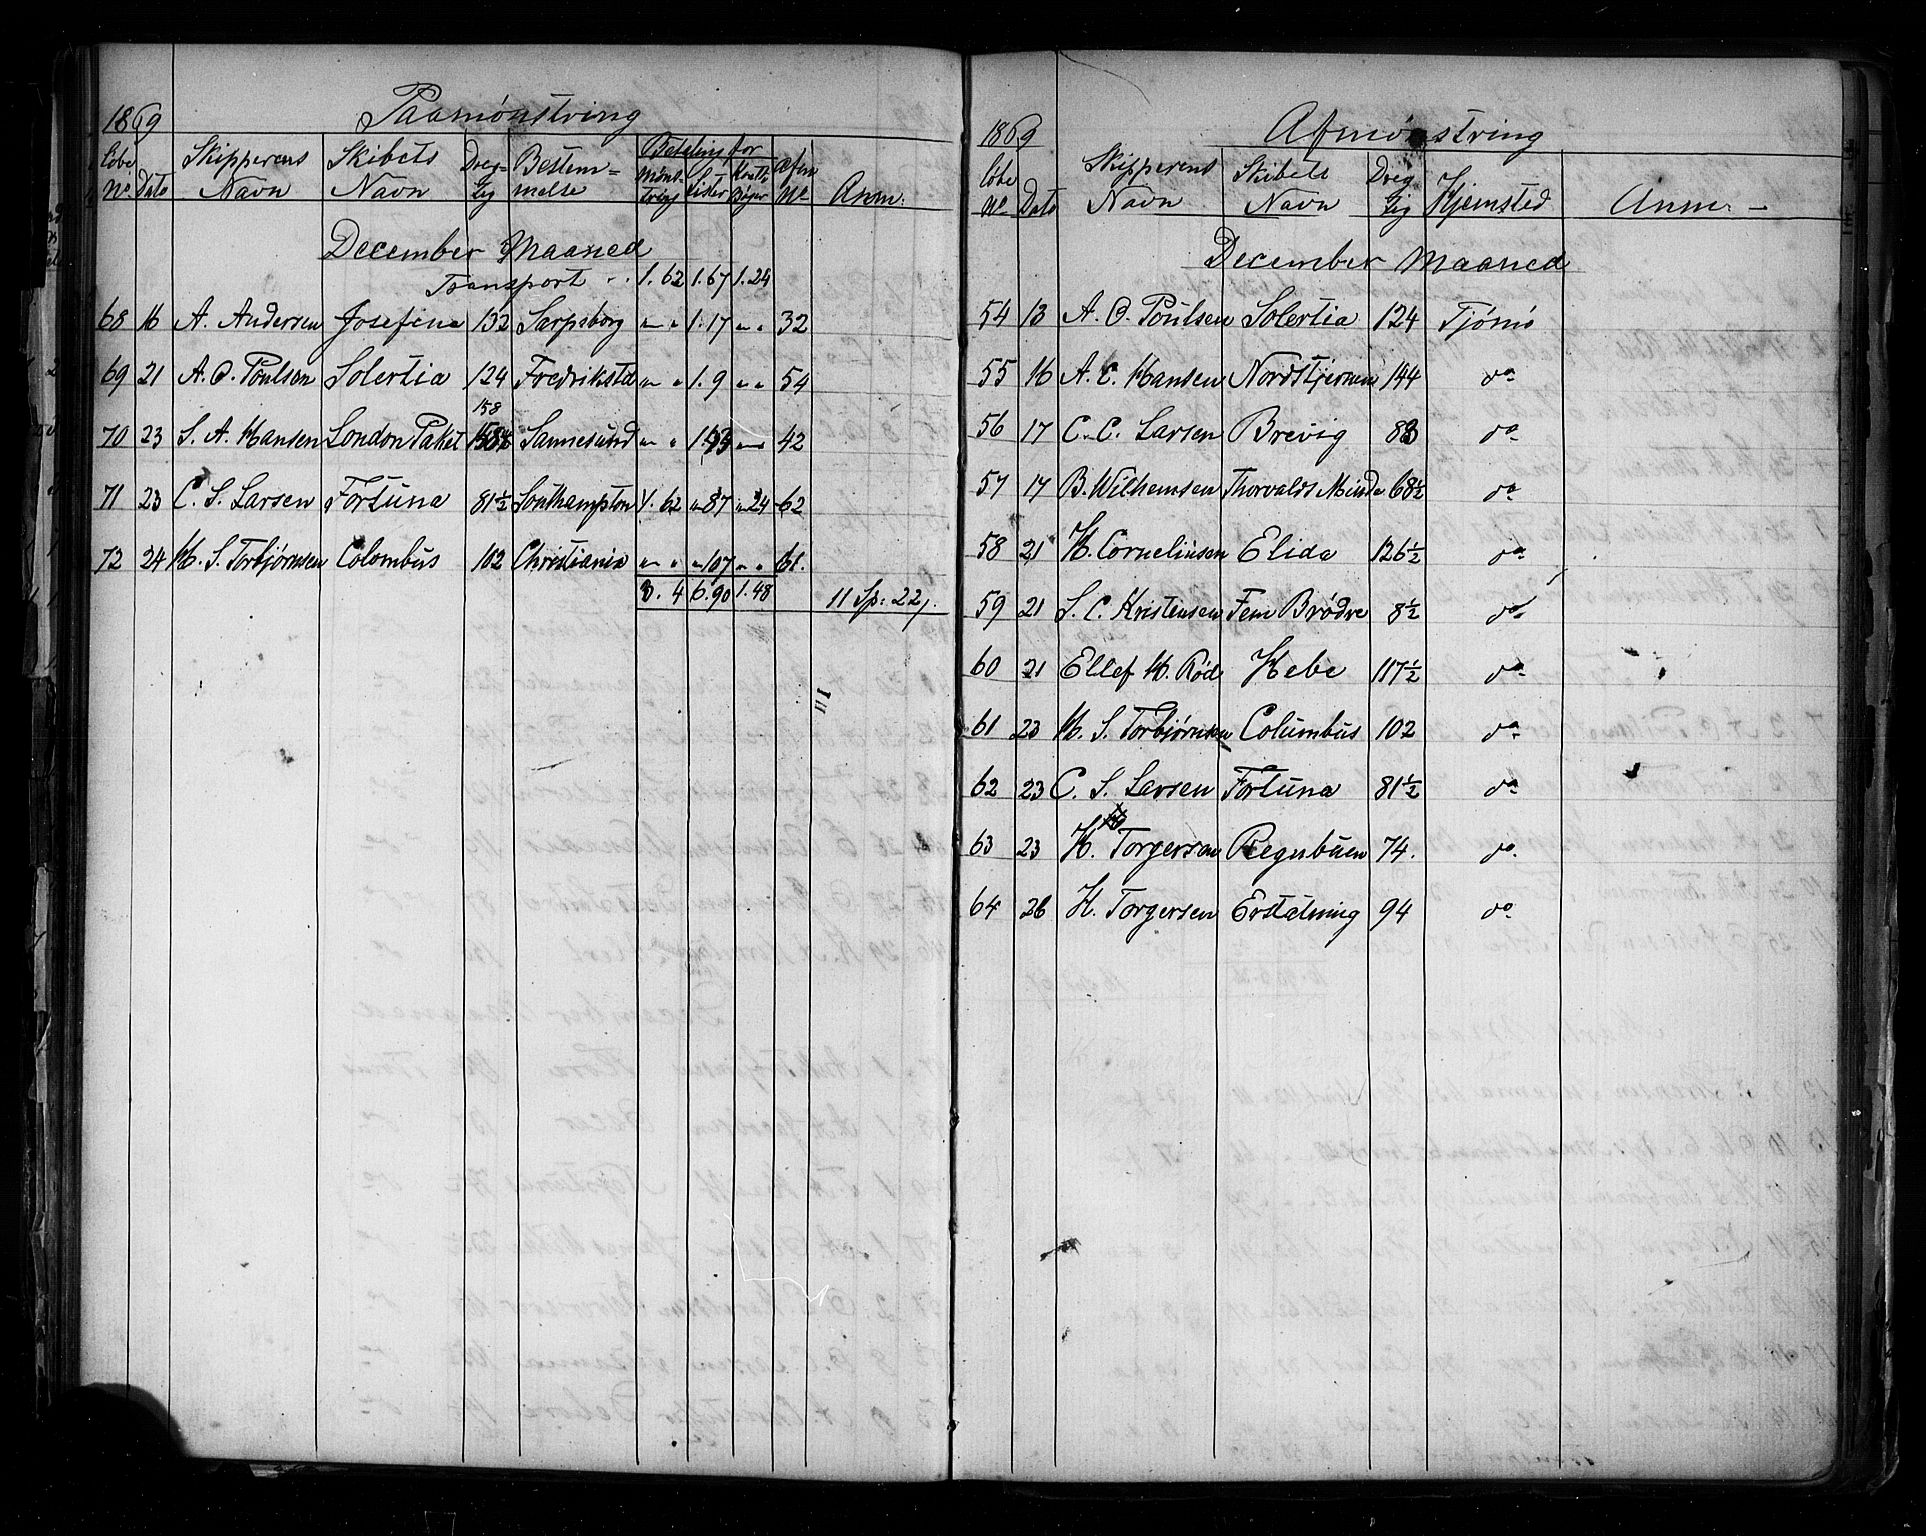 1869 Paamönstring
Löbe No. Dato Skipperens Navn Skibets Navn Dreg-tig Bestem-melse Betaling for Möns-tring Lister Afm No. Anm.
December Maaned
Transport - . 1.62 1.67 1.24
68 16 A. Andersen Josefine 132 Sarpsborg " " 1.17 " " 32
69 21 A. O. Poulsen Solertia 124 Fredriksted " " 1.9 " " 54
158
70 23 S. A. Hansen London Paket Sannesund " " 42
71 23 C. S. Larsen Fortuna 81½ Southampton 1.62 " 87 " 24 62
72 24 H. S. Torbjörnsen Colombus 102 Christiania " " " 107 " " 61.
3. 4 6.90 1.48 11 Sp: 22
1869 Afmönstring
Löbe No. Dato Skipperens Navn Skibets Navn Dreg tig Hjemsted Anm. -
December Maaned
54 13 A. O. Poulsen Solertia 124 Tjömö
55 16 A. C. Hansen Nordstjernen 144 do
56 17 C. C. Larsen Brevig 88 do
57 17 B. Wilhemsen Thorvalds Minde 68½ do
58 21 H. Corneliusen Elida 126½ do
59 21 S. C. Kristensen Fem Brödre 8½ do
60 21 Ellef H. Röd Hebe 117½ do
61 23 H. S. Torbjörnsen Columbus 102 do
62 23 C. S. Larsen Fortuna 81½ do
63 23 H. Torgersen Regnbuen 74. do
64 26 H. Torgersen Erstatning 94 do